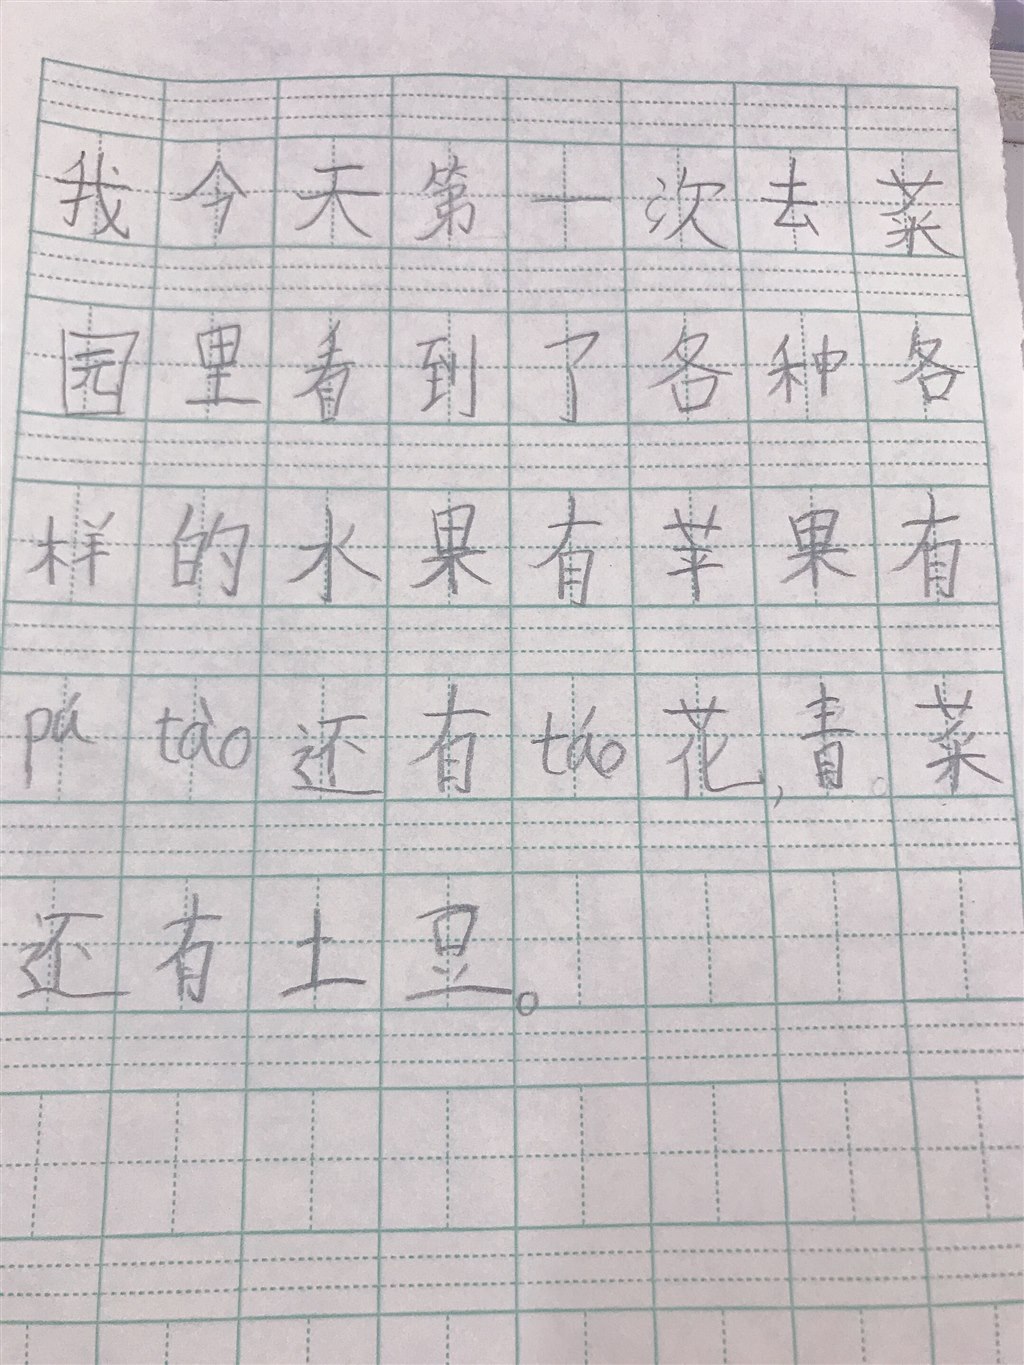 我今天第一次去菜
园里看到了各种各
样的水果有苹果有
pú tào还有táo花,青菜
还有土豆。